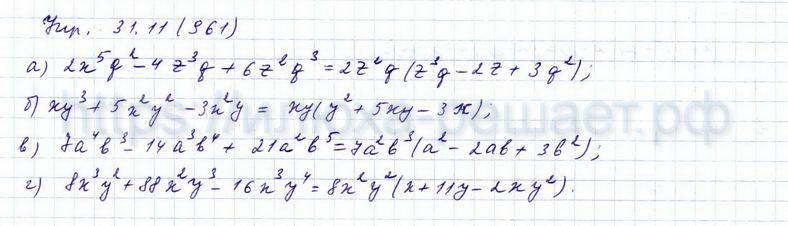 Упр. 31.11 (961)
а) 2x⁵q² - 4z³q + 6z²q³ = 2z²q (z³q - 2z + 3q²);
б) xy³ + 5x²y² - 3x²y = xy(y² + 5xy - 3x);
в) 7a⁴b³ - 14a³b⁴ + 21a²b⁵ = 7a²b³(a² - 2ab + 3b²);
г) 8x³y² + 88x²y³ - 16x³y⁴ = 8x²y²(x + 11y - 2xy²).